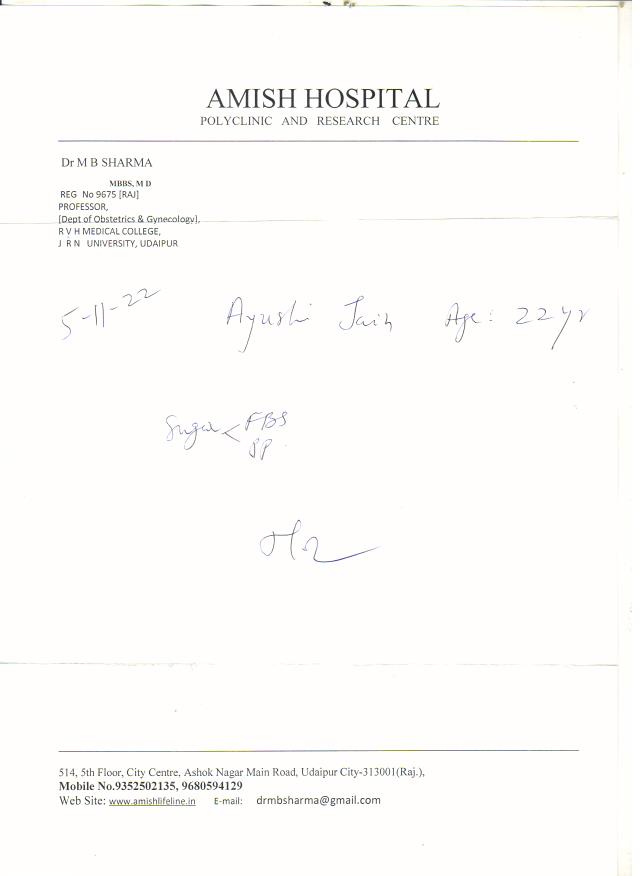 AMISH HOSPITAL
POLYCLINIC AND RESEARCH CENTRE
Dr M B SHARMA
MBBS, M D
REG No 9675 [RAJ]
PROFESSOR,
[Dept of Obstetrics & Gynecology],
R V H MEDICAL COLLEGE,
J R N UNIVERSITY, UDAIPUR
5-11-22 Ayushi Jain Age: 22 yr
Sugar < FBS
PP
514, 5th Floor, City Centre, Ashok Nagar Main Road, Udaipur City-313001(Raj.),
Mobile No.9352502135, 9680594129
Web Site: www.amishlifeline.in E-mail: drmbsharma@gmail.com